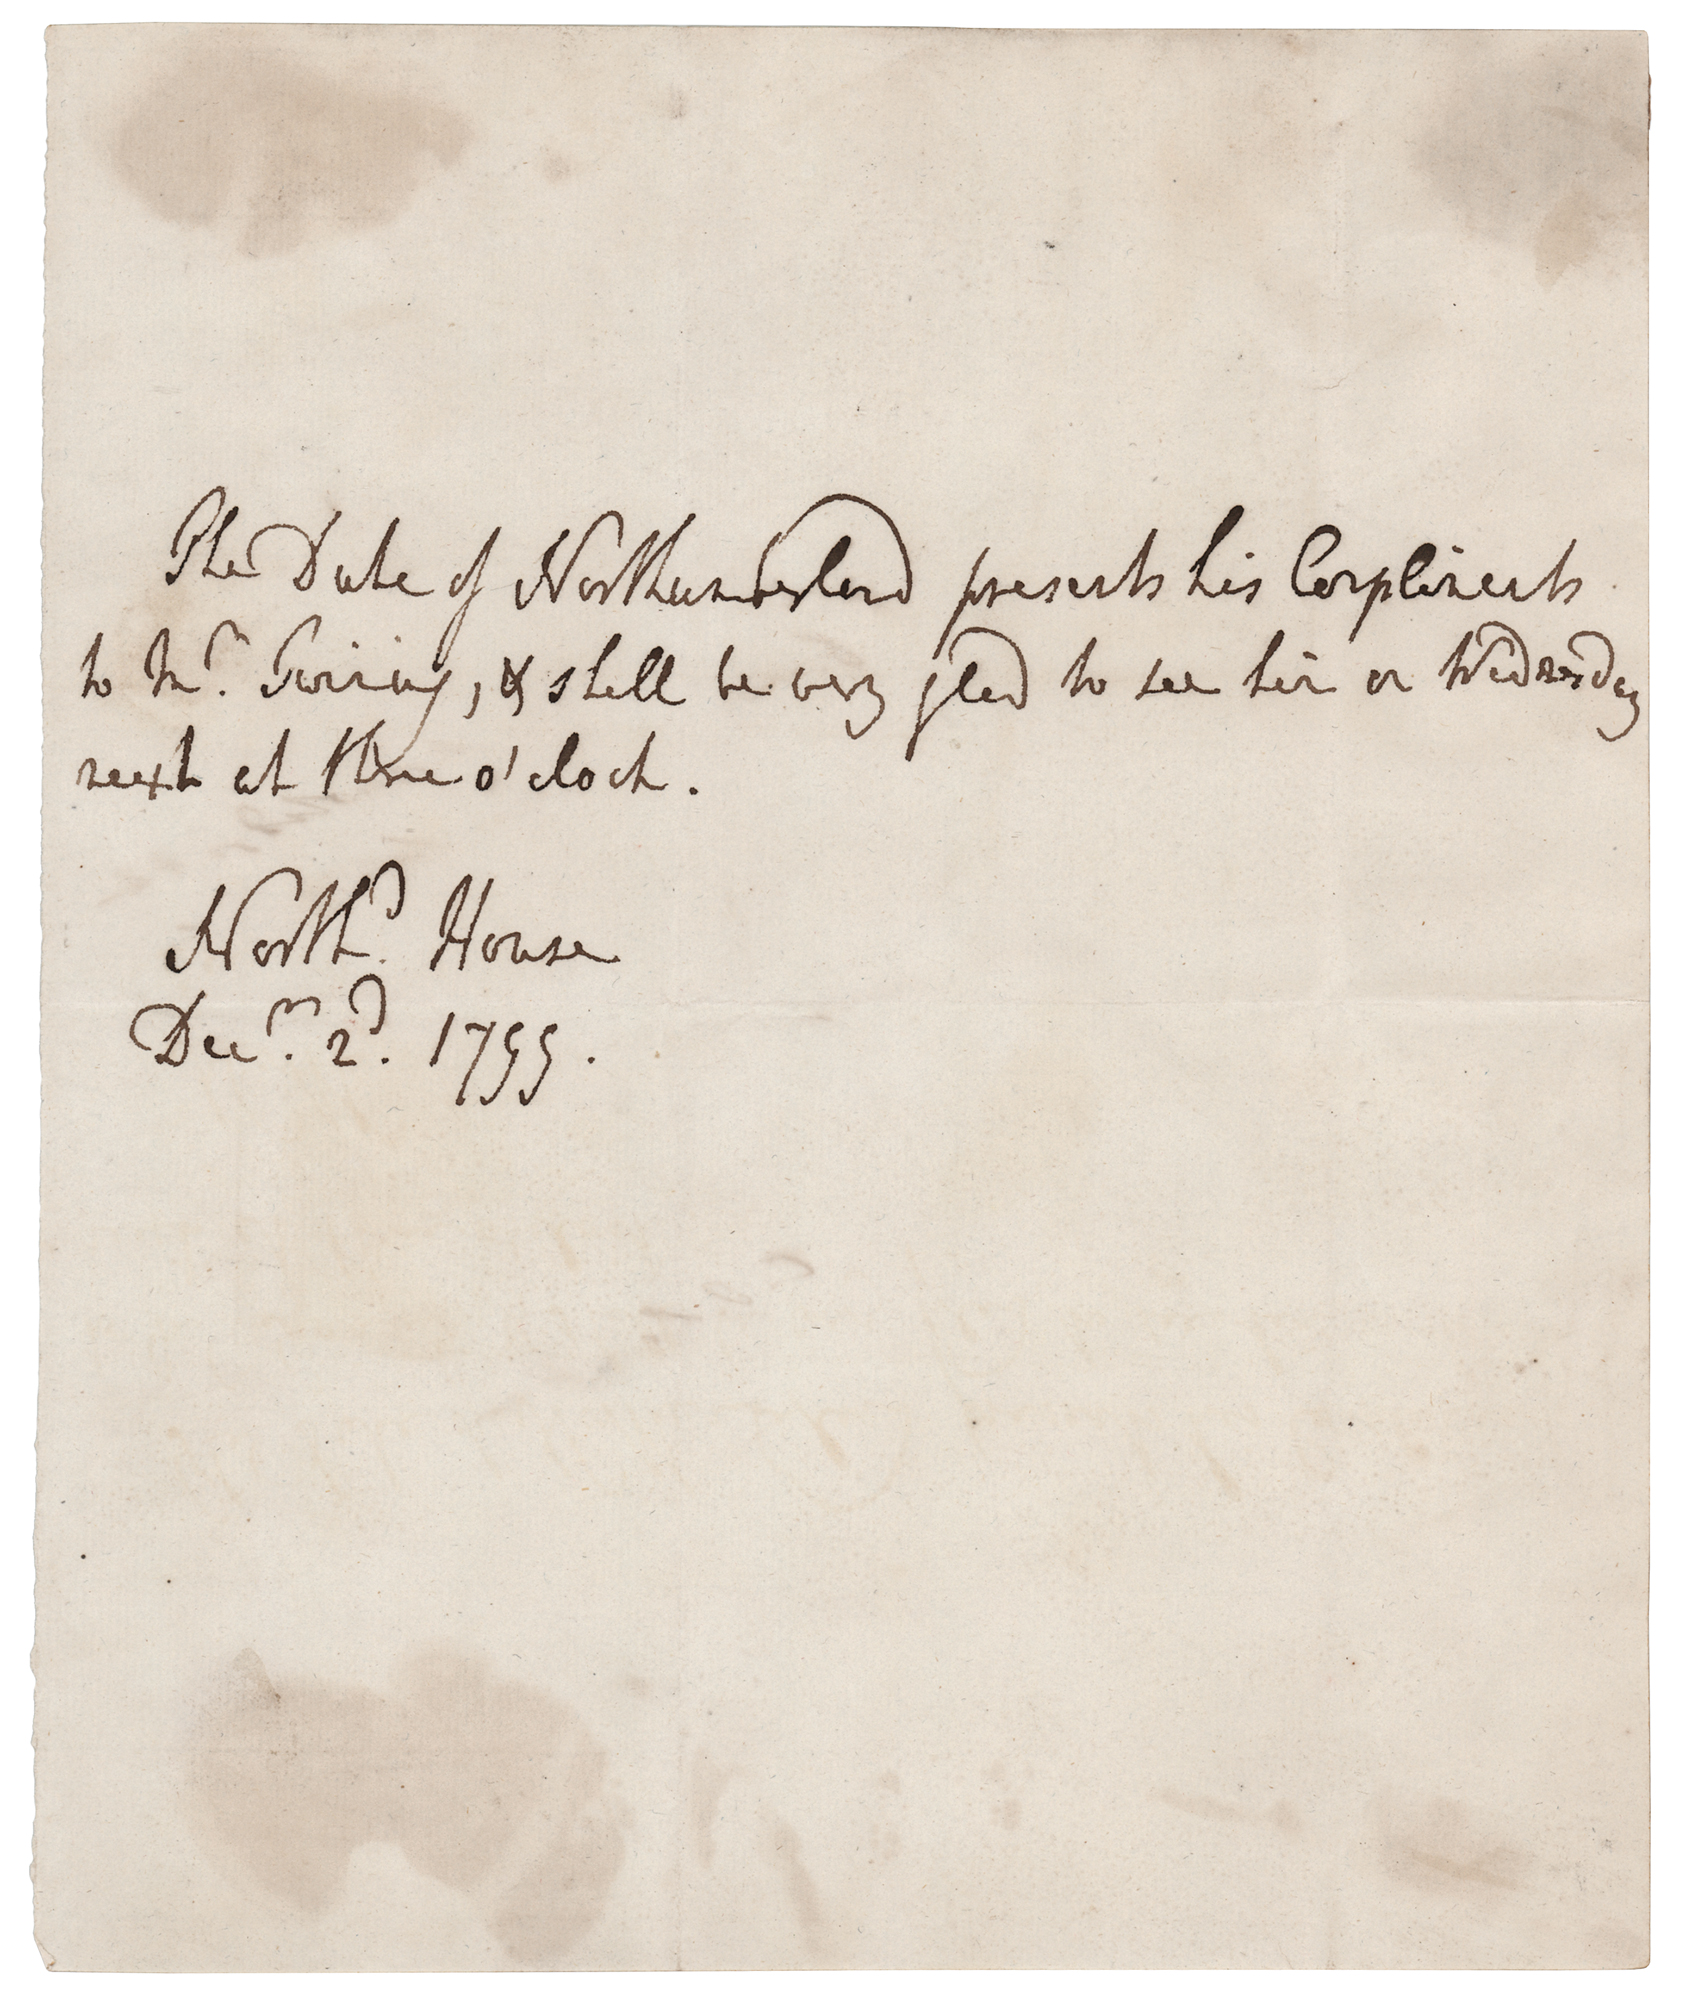 The Duke of Northumberland presents his Compliments
to Mr. Twining, & shall be very glad to see him on Wednesday
next at three o'clock.
Northd. House
Decr. 2d. 1799.